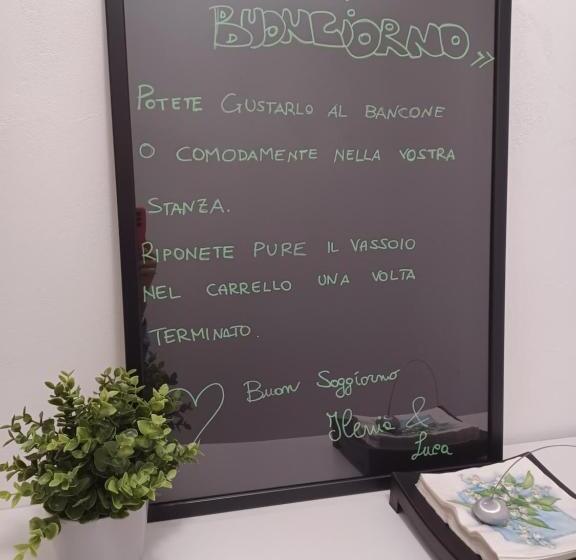 BUONGIORNO »
POTETE GUSTARLO AL BANCONE
O COMODAMENTE NELLA VOSTRA
STANZA.
RIPONETE PURE IL VASSOIO
NEL CARRELLO UNA VOLTA
TERMINATO.
Buon Soggiorno
Ilenia &
Luca